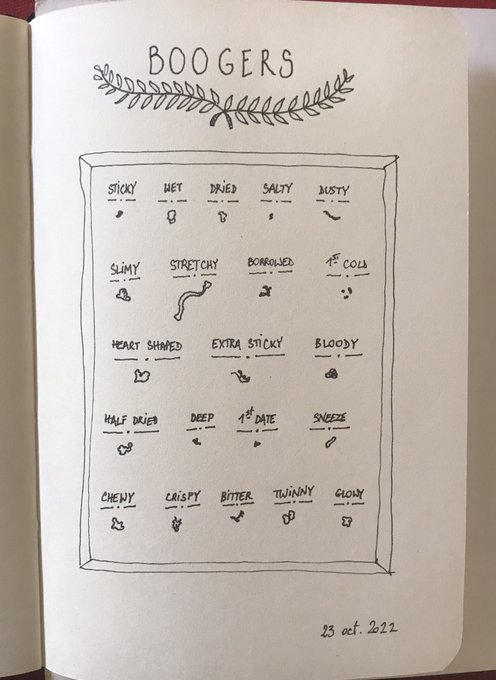 BOOGERS
STICKY WET DRIED SALTY DUSTY
SLIMY STRETCHY BORROWED 1ST COLD
HEART SHAPED EXTRA STICKY BLOODY
HALF DRIED DEEP 1st DATE SNEEZE
CHEWY CRISPY BITTER TWINNY GLOWY
23 oct. 2022